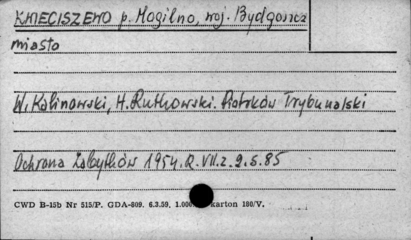 KWIECISZEWO p. Mogilno, woj. Bydgoszcz
miasto
W. Kalinowski, H. Rutkowski. Piotrków Trybunalski
Ochrona Zabytków 1954. R. VII. z. 2. s. 85
CWD B-15b Nr 515/P. GDA-809. 6.3.59. 1.000 karton 180/V.